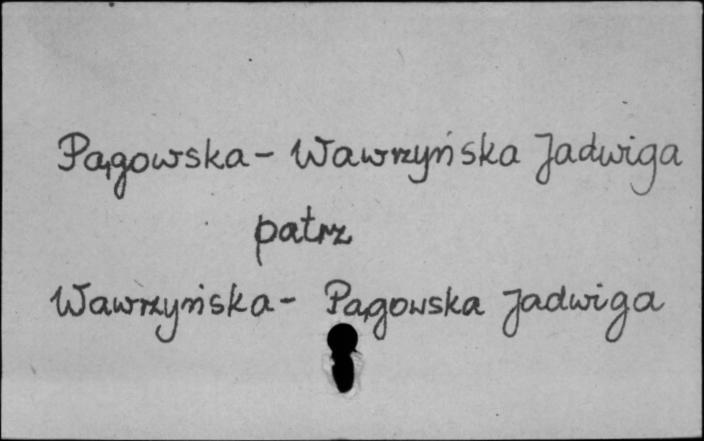 Pągowska - Wawrzyńska Jadwiga
patrz
Wawrzyńska - Pągowska Jadwiga